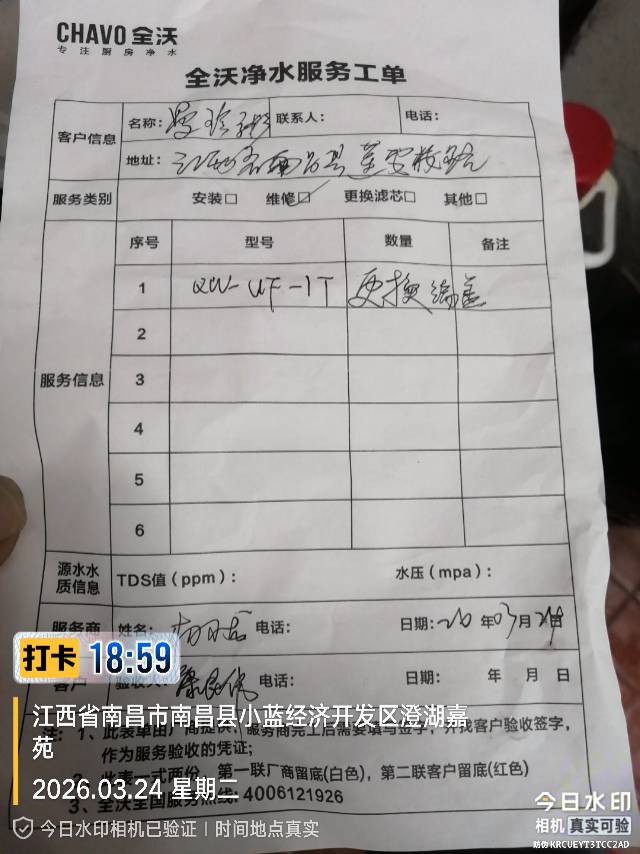 CHAVO 全沃
专注厨房净水
全沃净水服务工单
客户信息 名称: 联系人: 电话:
地址: 江西省南昌县
服务类别 安装□ 维修☑ 更换滤芯□ 其他□
服务信息 序号 型号 数量 备注
1 QW-UF-1T 更换端盖
2
3
4
5
6
源水水质信息 TDS值（ppm）: 水压（mpa）:
服务商 姓名: 电话: 日期: 2026年03月24日
客户 验收人: 电话: 日期: 年 月 日
注: 1、此表单由厂商提供，服务商完工后需要填写签字，并找客户验收签字，
作为服务验收的凭证;
2、此表一式两份，第一联厂商留底(白色)，第二联客户留底(红色)
3、全沃全国服务热线: 4006121926
打卡 18:59
江西省南昌市南昌县小蓝经济开发区澄湖嘉
苑
2026.03.24 星期二
今日水印相机已验证 | 时间地点真实
今日水印
相机 真实可验
防伪 KRCUEYT3TCC2AD